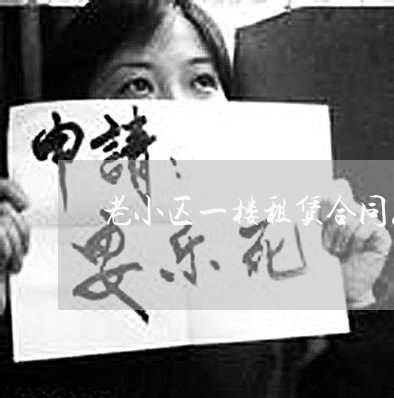 申請：
老小区一楼租赁合同
安乐死